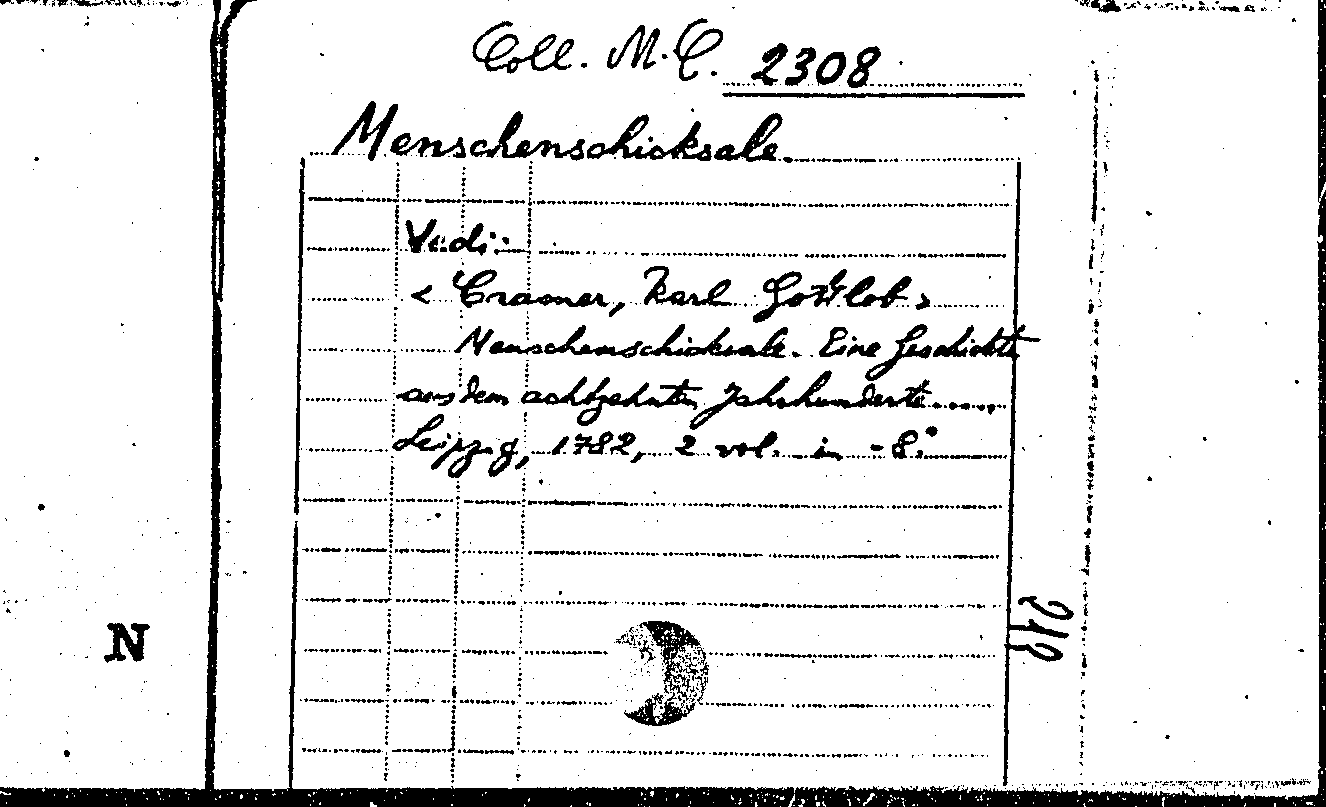 Coll. M.C. 2308
Menschenschicksale.
Vedi:
< Cramer, Karl Gottlob >
Menschenschicksale. Eine Geschichte
aus dem achtzehnten Jahrhunderte.....
Leipzig, 1782, 2 vol. in -8°
N